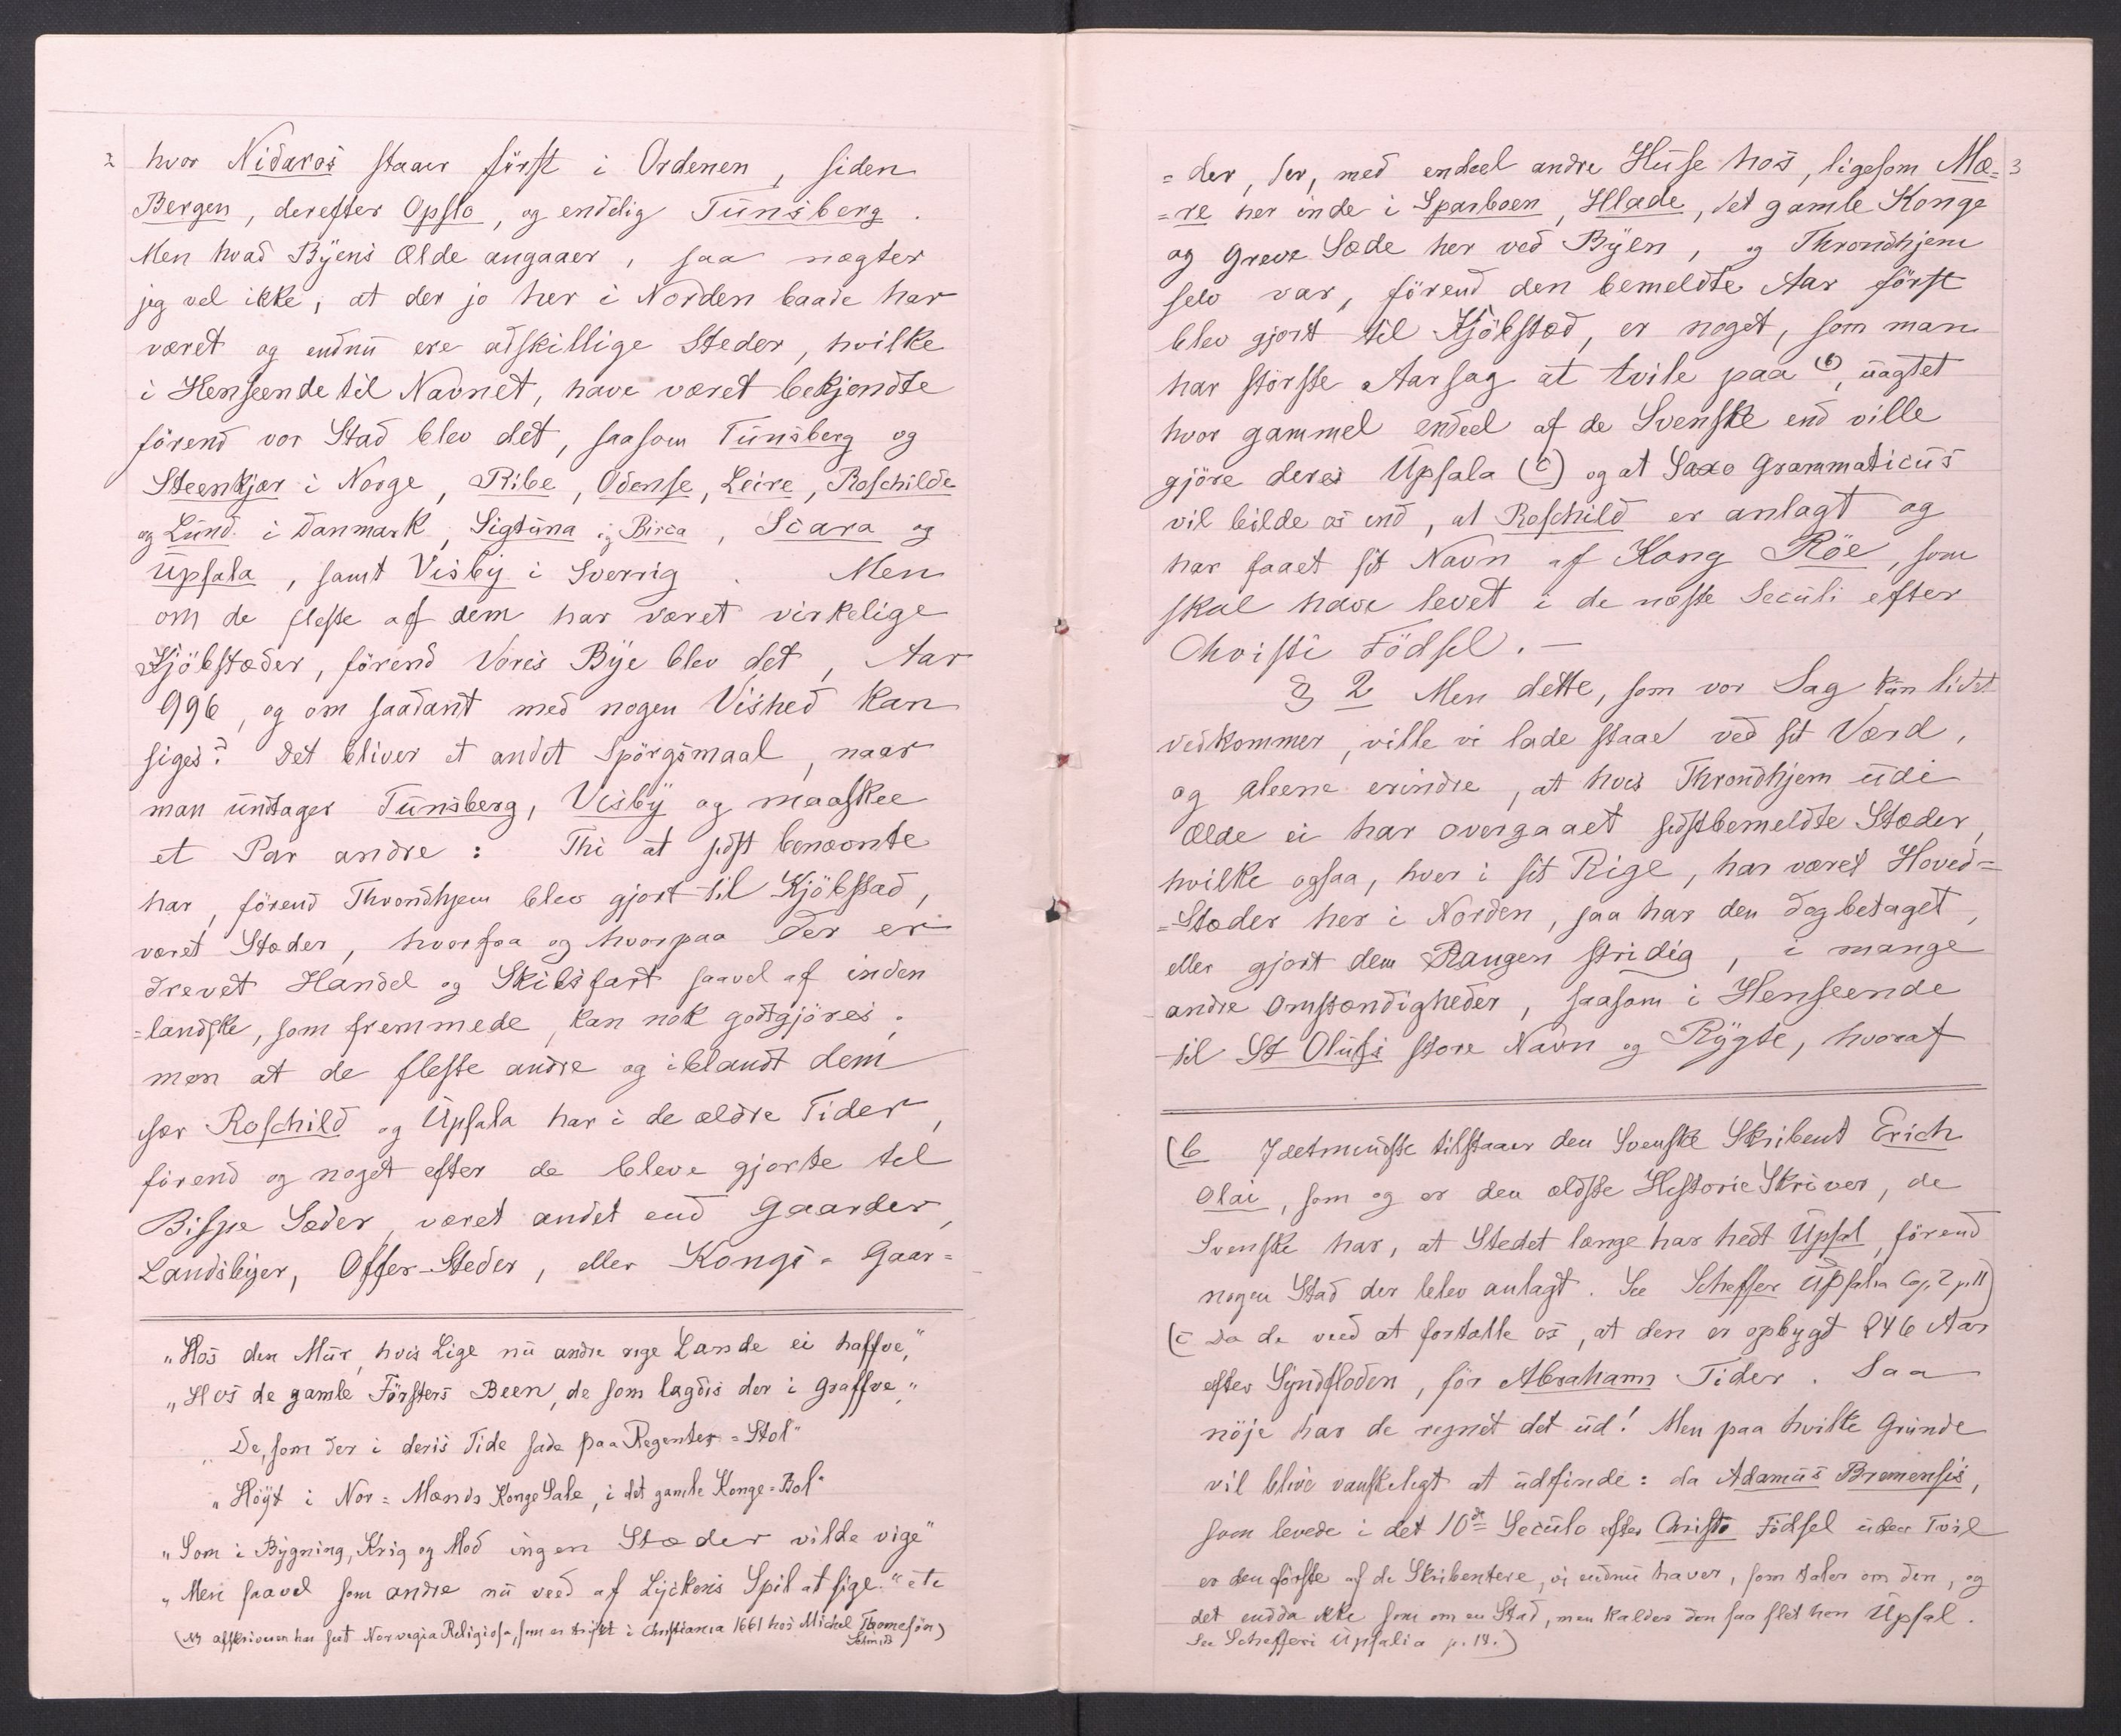 2
hvor Nidaros staaer först i Ordenen, siden
Bergen, derefter Opslo, og endelig Tunsberg.
Men hvad Byens Ælde angaaer, saa nægter
jeg vel ikke, at der jo her i Norden baade har
været og endnu ere adskillige Steder, hvilke
i Henseende til Navnet, have været bekjendte
förend vor Stad blev det, saasom Tunsberg og
Steenkjær i Norge, Ribe, Odense, Leire, Roschilde
og Lund i Danmark, Sigtuna og Birca, Scara og
Upsala, samt Visby i Sverrig. Men
om de fleste af dem har været virkelige
Kjöbstæder, förend Vores Bye blev det, Aar
996, og om saadant med nogen Vished kan
siges? Det bliver et andet Spörgsmaal, naar
man undtager Tunsberg, Visby og maaskee
et Par andre: Thi at sidst benævnte
har, förend Throndhjem blev gjort til Kjöbstad,
været Stæder, hvorfra og hvorpaa der er
drevet Handel og Skibsfart saavel af inden
=landske, som fremmede, kan nok godtgjöres;
men at de fleste andre og iblandt dem
sær Roschild og Upsala har i de ældre Tider,
förend og noget efter de bleve gjorte til
Bispe Sæder, været andet end Gaarder,
Landsbyer, Offer-Steder, eller Kongs-Gaar=
„Hos den Mur, hvis Lige nu andre rige Lande ei haffve,"
„Hos de gamle Försters Been, de som lagdis der i Graffve,"
„De, som der i deris Tide sade paa Regenter=Stol"
„Höyt i Nor=Mænds Konge Sale, i det gamle Konge=Bol"
„Som i Bygning, Krig og Mod ingen Stæder vilde vige"
„Men saavel som andre nu veed af Lyckens Spil at sige." etc
(NB afskriveren har seet Norvegia Religiosa, som er trykt i Christiania 1661 hos Michel Thomesön)
Schmidt
3
=der, der, med endeel andre Huse hos, ligesom Mæ=
=re her inde i Sparboen, Hlade, det gamle Konge
og Greve Sæde her ved Byen, og Throndhjem
selv var, förend den bemeldte Aar först
blev gjort til Kjöbstæd, er noget, som man
har störste Aarsag at tvile paa (b), uagtet
hvor gammel endeel af de Svenske end ville
gjöre deres Upsala (c) og at Saxo Grammaticus
vil bilde os ind, at Roschild er anlagt og
har faaet sit Navn af Kong Röe, som
skal have levet i de næste Seculi efter
Christi Födsel. —
§ 2 Men dette, som vor Sag kun lidet
vedkommer, ville vi lade staae ved sit Værd,
og aleene erindre, at hvis Throndhjem udi
Ælde ei har overgaaet sidstbemeldte Stæder,
hvilke ogsaa, hver i sit Rige, har været Hoved=
=Stæder her i Norden, saa har den dog betaget,
eller gjort dem Rangen stridig, i mange
andre Omstændigheder, saasom i Henseende
til St Olufs store Navn og Rygte, hvoraf
(b Idetmindste tilstaaer den Svenske Skribent Erich
Olai, som og er den ældste Historie Skriver, de
Svenske har, at Stedet længe har hedt Upsal, förend
nogen Stad der blev anlagt. See Scheffer Upsalia Cap. 2 p. 11)
(c Da de veed at fortælle os, at den er opbygt 246 Aar
efter Syndfloden, för Abrahams Tider. Saa
nöje har de regnet det ud! Men paa hvilke Grunde
vil blive vanskeligt at udfinde: da Adamus Bremensis,
som levede i det 10de Seculo efter Christi Födsel uden Tvil
er den förste af de Skribentere, vi endnu haver, som taler om den, og
det endda ikke som om en Stad, men kalder den saa slet hen Upsal.
See Schefferi Upsalia p. 14.)